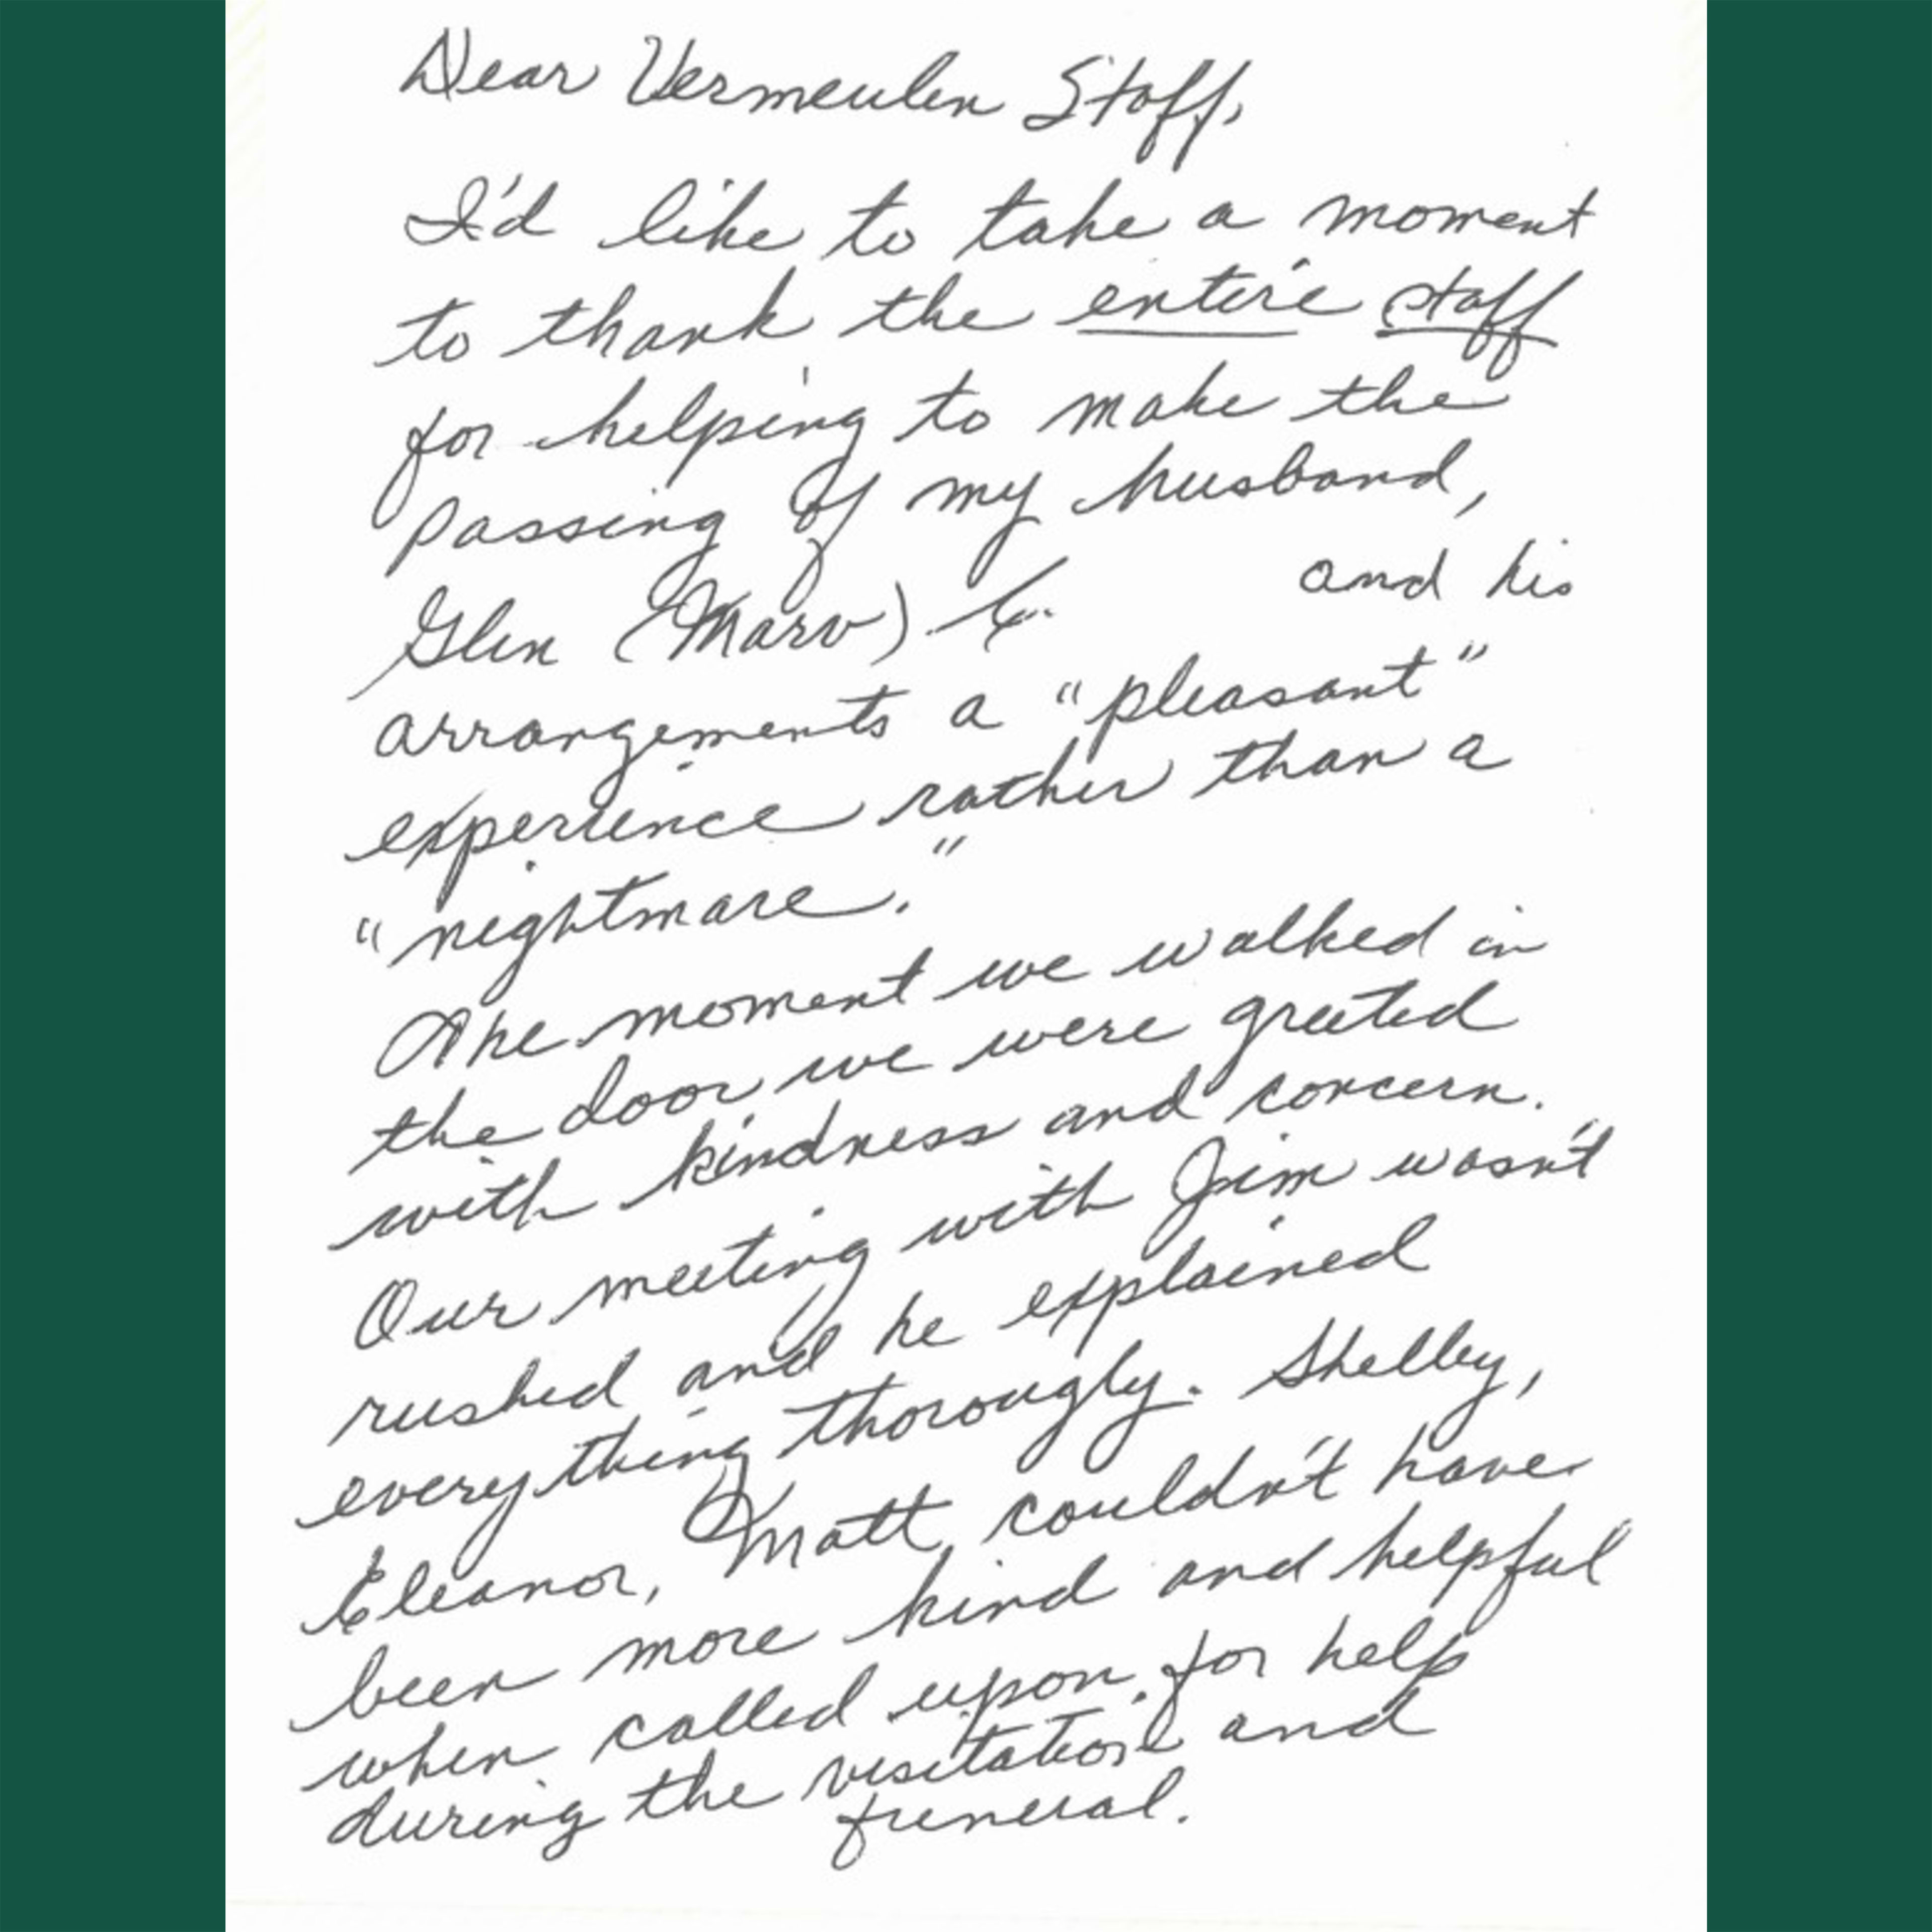 Dear Vermeulen Staff,
I'd like to take a moment
to thank the entire staff
for helping to make the
passing of my husband,
Glen (Marv) and his
arrangements a "pleasant"
experience rather than a
"nightmare."
The moment we walked in
the door we were greeted
with kindness and concern.
Our meeting with Jim wasn't
rushed and he explained
everything thorougly. Shelley,
Eleanor, Matt couldn't have
been more kind and helpful
when called upon for help
during the visitation and
funeral.